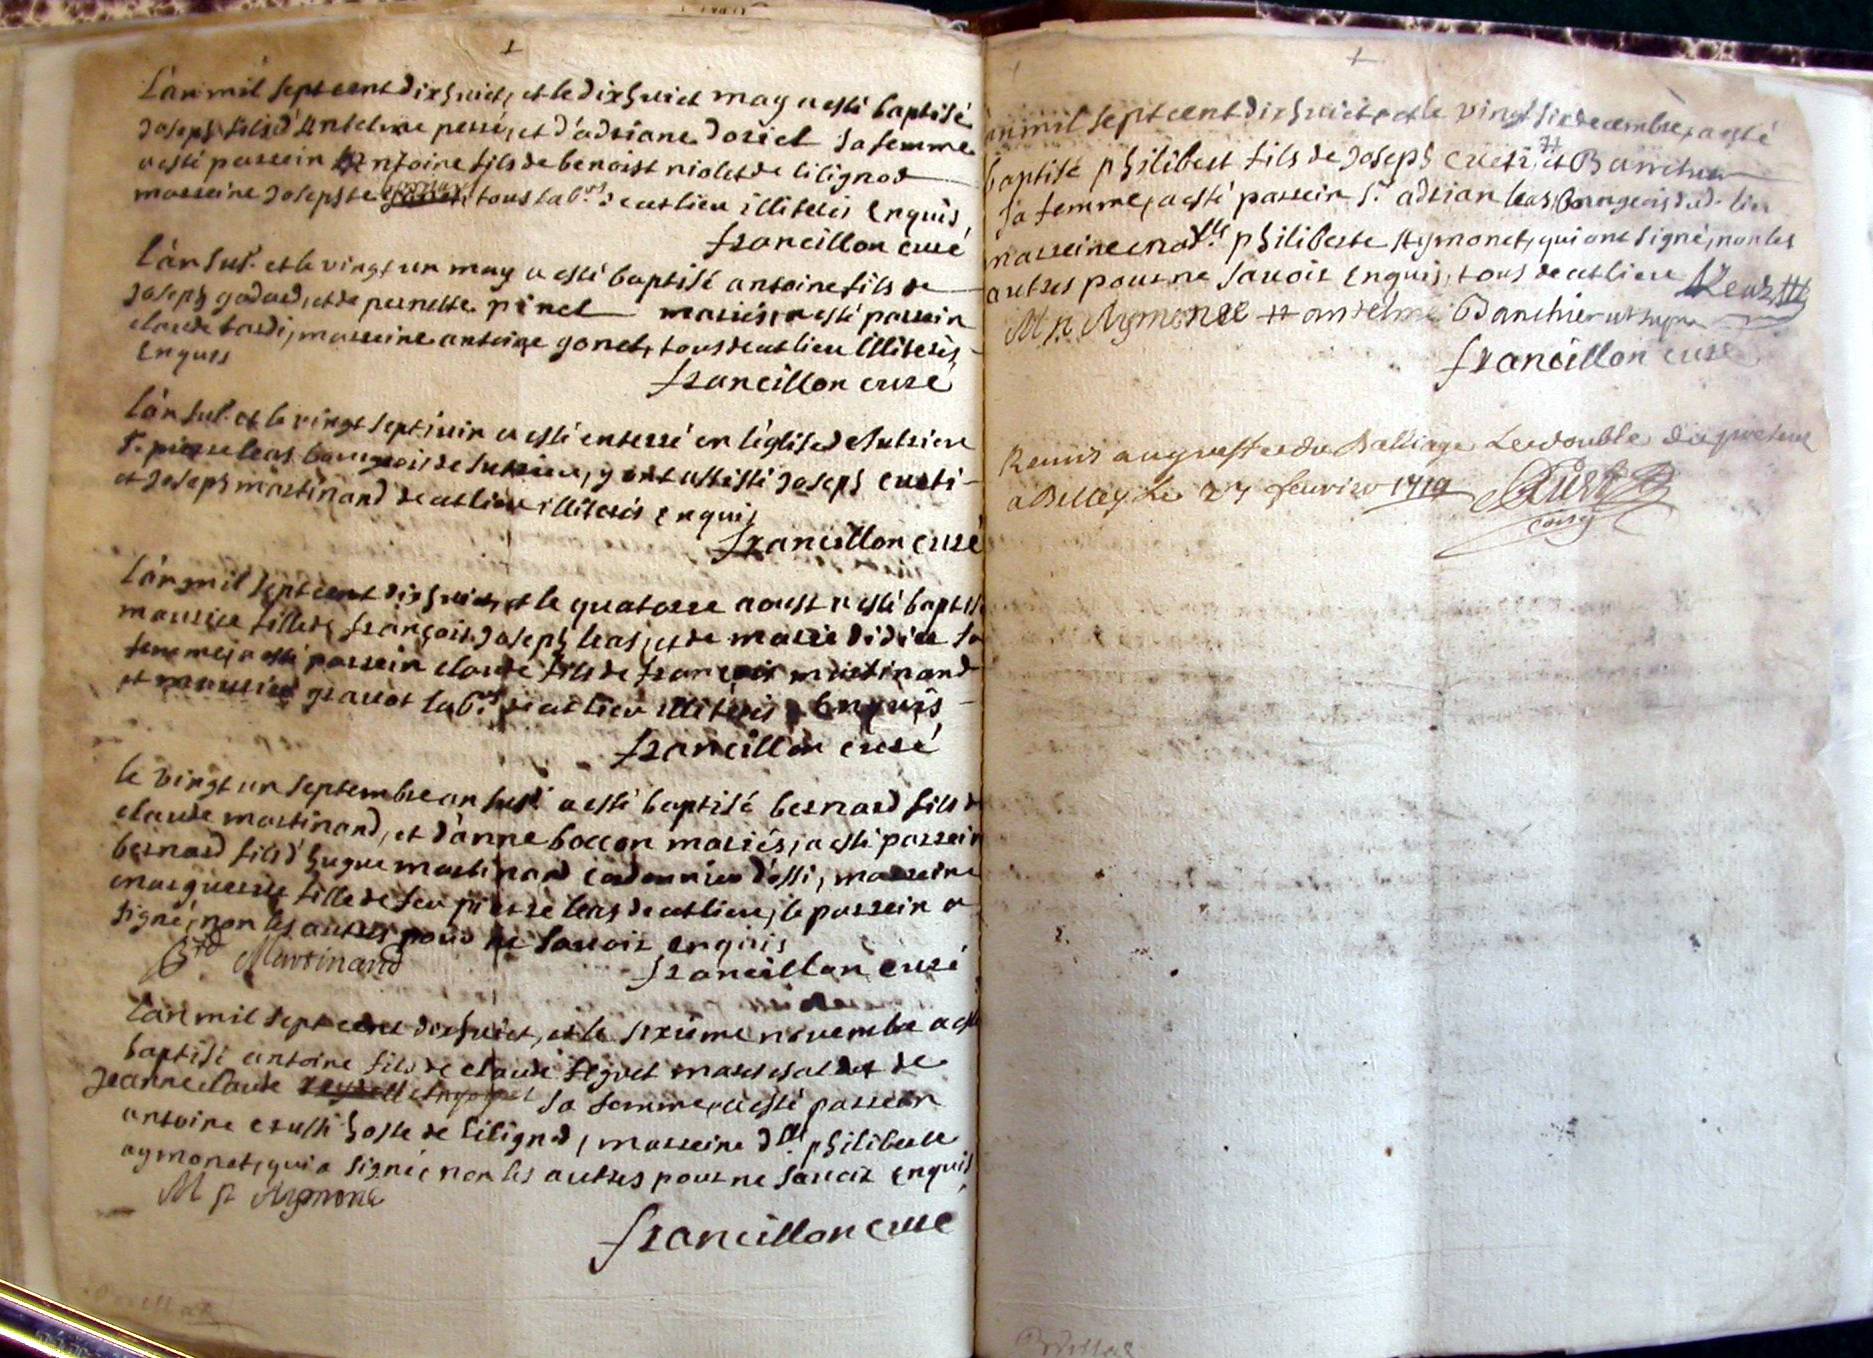 L'an mil sept cent dixhuict, et le dixhuict may a esté baptisé
Joseph fils d'Antelme perré, et d'adriane Doriel sa femme
a esté parrein Antoine fils de benoist niolet de lilignod
marreine Josephte tous lab.rs de ce lieu illiterés Enquis
francillon curé
L'an sus.t et le vingt un may a esté baptisé antoine fils de
Joseph godard, et de pernette pinel mariés, a esté parrein
claude tardi, marreine antoine gonet, tous de ce lieu illiterés
Enquis
francillon curé
L'an sus.t et le vingt sept juin a esté enterré en l'église de Sutrieu
S.r pierre leas bourgeois de Sutrieu, y ont assisté Joseph cueti
et Joseph martinand de ce lieu illiterés enquis
francillon curé
L'an mil sept cent dixhuict, et le quatorze aoust a esté baptisé
maurise fille de françois Joseph leas, et de marie didier sa
femme, a esté parrein claude fils de françois martinand
et maurise gravot lab.rs de ce lieu illiterés Enquis
francillon curé
le vingt un septembre an susd.t a esté baptisé bernard fils de
claude martinand, et d'anne boccon mariés, a esté parrein
bernard fils d'hugue martinand cordonnier d'assi, marreine
marguerite fille de feu pierre leas de ce lieu, le parrein a
signé, non les autres pour ne savoir enquis
B.rd Martinand
francillon curé
L'an mil sept cent dixhuict, et le sixième novembre a esté
baptisé antoine fils de claude marechal et de
Jeanne claude sa femme, a esté parrein
antoine hoste de lilignod, marreine d.lle philiberte
aymonet, qui a signé, non les autres pour ne savoir enquis
M p Aymone
francillon curé
L'an mil sept cent dixhuict, et le vingt six decembre, a esté
baptisé philibert fils de Joseph cueti, # et Banchu
sa femme, a esté parrein S.r adrian leas, bourgeois dud. lieu
marreine mad.lle philiberte Aymonet, qui ont signé, non les
autres pour ne savoir Enquis, tous de ce lieu Leas
M p. Aymone # antelme Banchier ut supra
francillon curé
Remis au greffe du Balliage Le double du present
a Belley Le 27 fevrier 1719